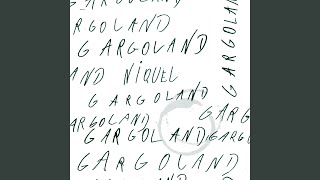 GARGOLAND
GARGOLAND
GARGOVAND
AND NIQUEL
GARGOLAND
ARGOLAND
GARGOLAND
GARG
GARGO
GARGOLAND
GARGOLAND